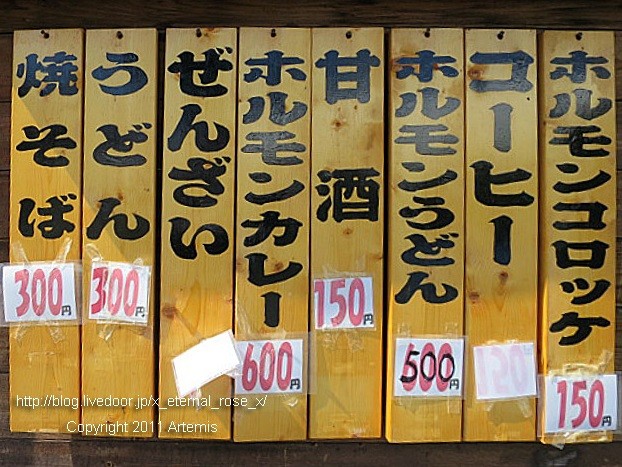 ホルモンコロッケ
150円
コーヒー
ホルモンうどん
500円
甘酒
150円
ホルモンカレー
600円
ぜんざい
うどん
300円
焼そば
300円
http://blog.livedoor.jp/x_eternal_rose_x/
Copyright 2011 Artemis